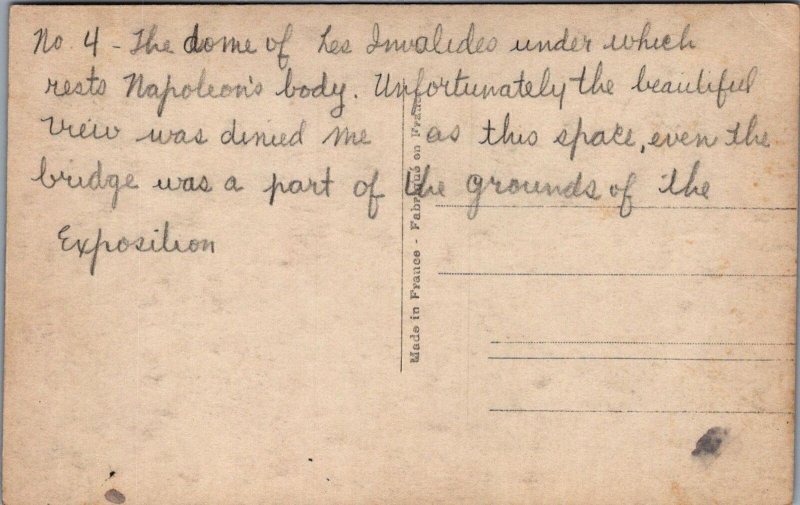 No. 4 - The dome of Les Invalides under which
rests Napoleon's body. Unfortunately the beautiful
view was denied me as this space, even the
bridge was a part of the grounds of the
Exposition
Made in France - Fabriqué en France